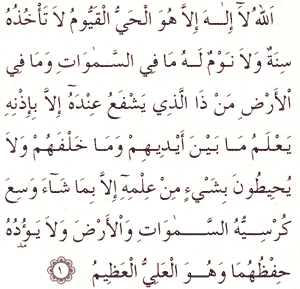 اَللهُ لَآ إِلٰـهَ إِلاَّ هُوَ الْحَيُّ الْقَيُّومُ لاَ تَأْخُذُهُ
سِنَةٌ وَلاَ نَوْمٌ لَهُ مَا فِي السَّـمٰوَاتِ وَمَا فِي
الْأَرْضِ مَنْ ذَا الَّذِي يَشْفَعُ عِنْدَهُ إِلاَّ بِإِذْنِهِ
يَعْلَمُ مَـا بَيْنَ أَيْدِيـهِمْ وَمَا خَلْفَهُمْ وَلاَ
يُحِيطُونَ بِشَيْءٍ مِنْ عِلْمِهِ إِلاَّ بِمَا شَـآءَ وَسِعَ
كُرْسِـيُّهُ السَّـمٰوَاتِ وَالْأَرْضَ وَلاَ يَـؤُدُهُ
حِفْظُهُمَا وَهُـوَ الْعَلِيُّ الْعَظِيمُ ١